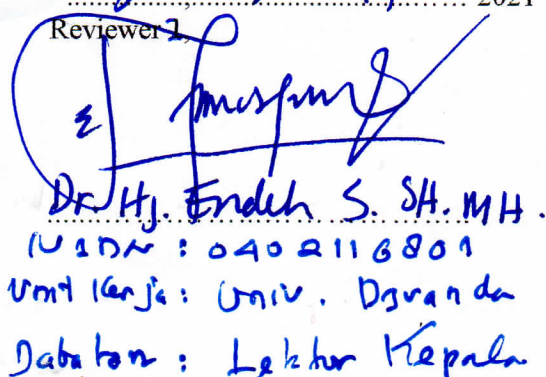 2021
Reviewer 2,
Dr. Hj. Endeh S. SH. MH.
NIDN : 0402116801
Unit Kerja : Univ. Djuanda
Jabatan : Lektor Kepala